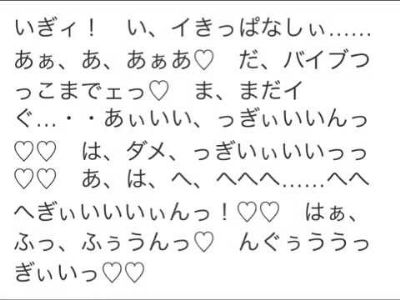 いぎィ！　い、イきっぱなしぃ……
あぁ、あ、あぁあ♡　だ、バイブつ
っこまでェっ♡　ま、まだイ
ぐ…・・あぃいい、っぎぃいいんっ
♡♡　は、ダメ、っぎいぃいいっっ
♡♡　あ、は、へ、へへへ……へへ
へぎぃいいいぃんっ！♡♡　はぁ、
ふっ、ふぅうんっ♡　んぐぅううっ
ぎぃいっ♡♡